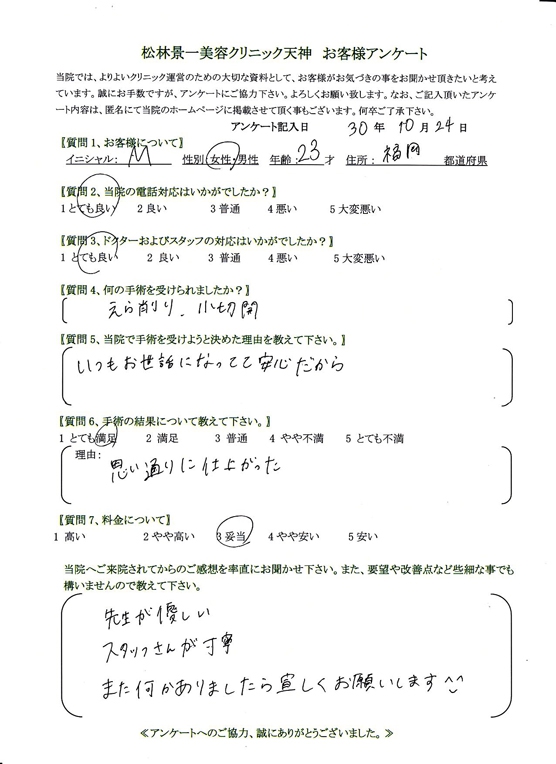 松林景一美容クリニック天神　お客様アンケート
当院では、よりよいクリニック運営のための大切な資料として、お客様がお気づきの事をお聞かせ頂きたいと考え
ています。誠にお手数ですが、アンケートにご協力下さい。よろしくお願い致します。なお、ご記入頂いたアンケ
ート内容は、匿名にて当院のホームページに掲載させて頂く事もございます。何卒ご了承下さい。
アンケート記入日　30 年 10 月 24 日
〖質問 1、お客様について〗
イニシャル： M　性別 女性・男性　年齢：23 才　住所： 福岡　都道府県
〖質問 2、当院の電話対応はいかがでしたか？〗
1 とても良い　2 良い　3 普通　4 悪い　5 大変悪い
〖質問 3、ドクターおよびスタッフの対応はいかがでしたか？〗
1 とても良い　2 良い　3 普通　4 悪い　5 大変悪い
〖質問 4、何の手術を受けられましたか？〗
えら削り、小切開
〖質問 5、当院で手術を受けようと決めた理由を教えて下さい。〗
いつもお世話になってて安心だから
〖質問 6、手術の結果について教えて下さい。〗
1 とても満足　2 満足　3 普通　4 やや不満　5 とても不満
理由：
思い通りに仕上がった
〖質問 7、料金について〗
1 高い　2 やや高い　3 妥当　4 やや安い　5 安い
当院へご来院されてからのご感想を率直にお聞かせ下さい。また、要望や改善点など些細な事でも
構いませんので教えて下さい。
先生が優しい
スタッフさんが丁寧
また何かありましたら宜しくお願いします^^
≪アンケートへのご協力、誠にありがとうございました。≫